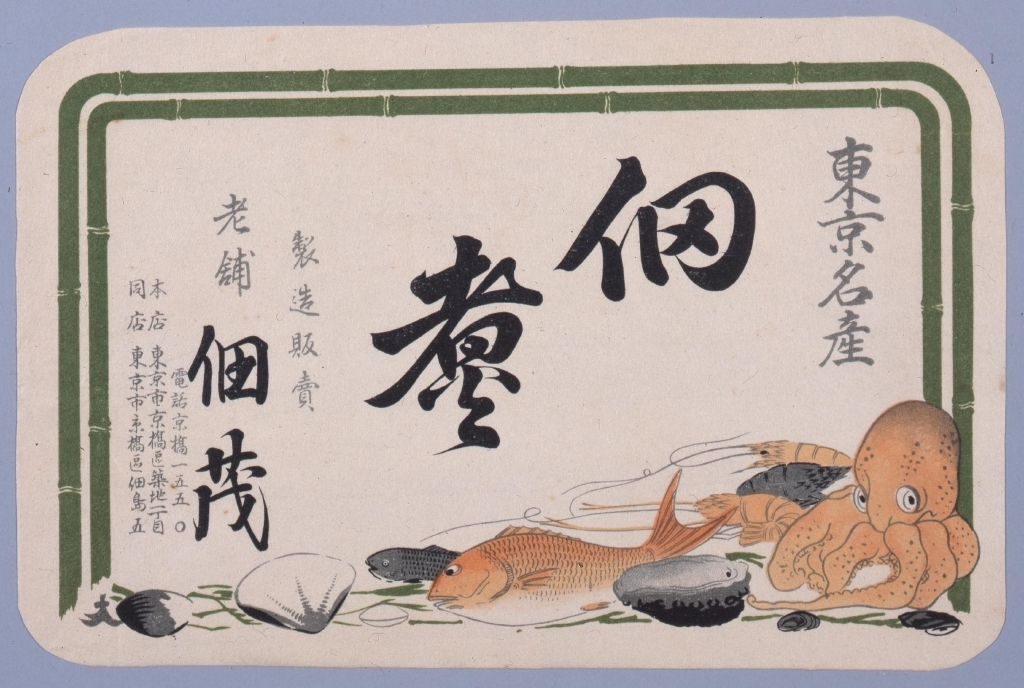 東京名産
佃煮
製造販賣
老舖 佃茂
電話京橋一五五〇
本店 東京市京橋區築地一丁目
同店 東京市京橋區佃島五